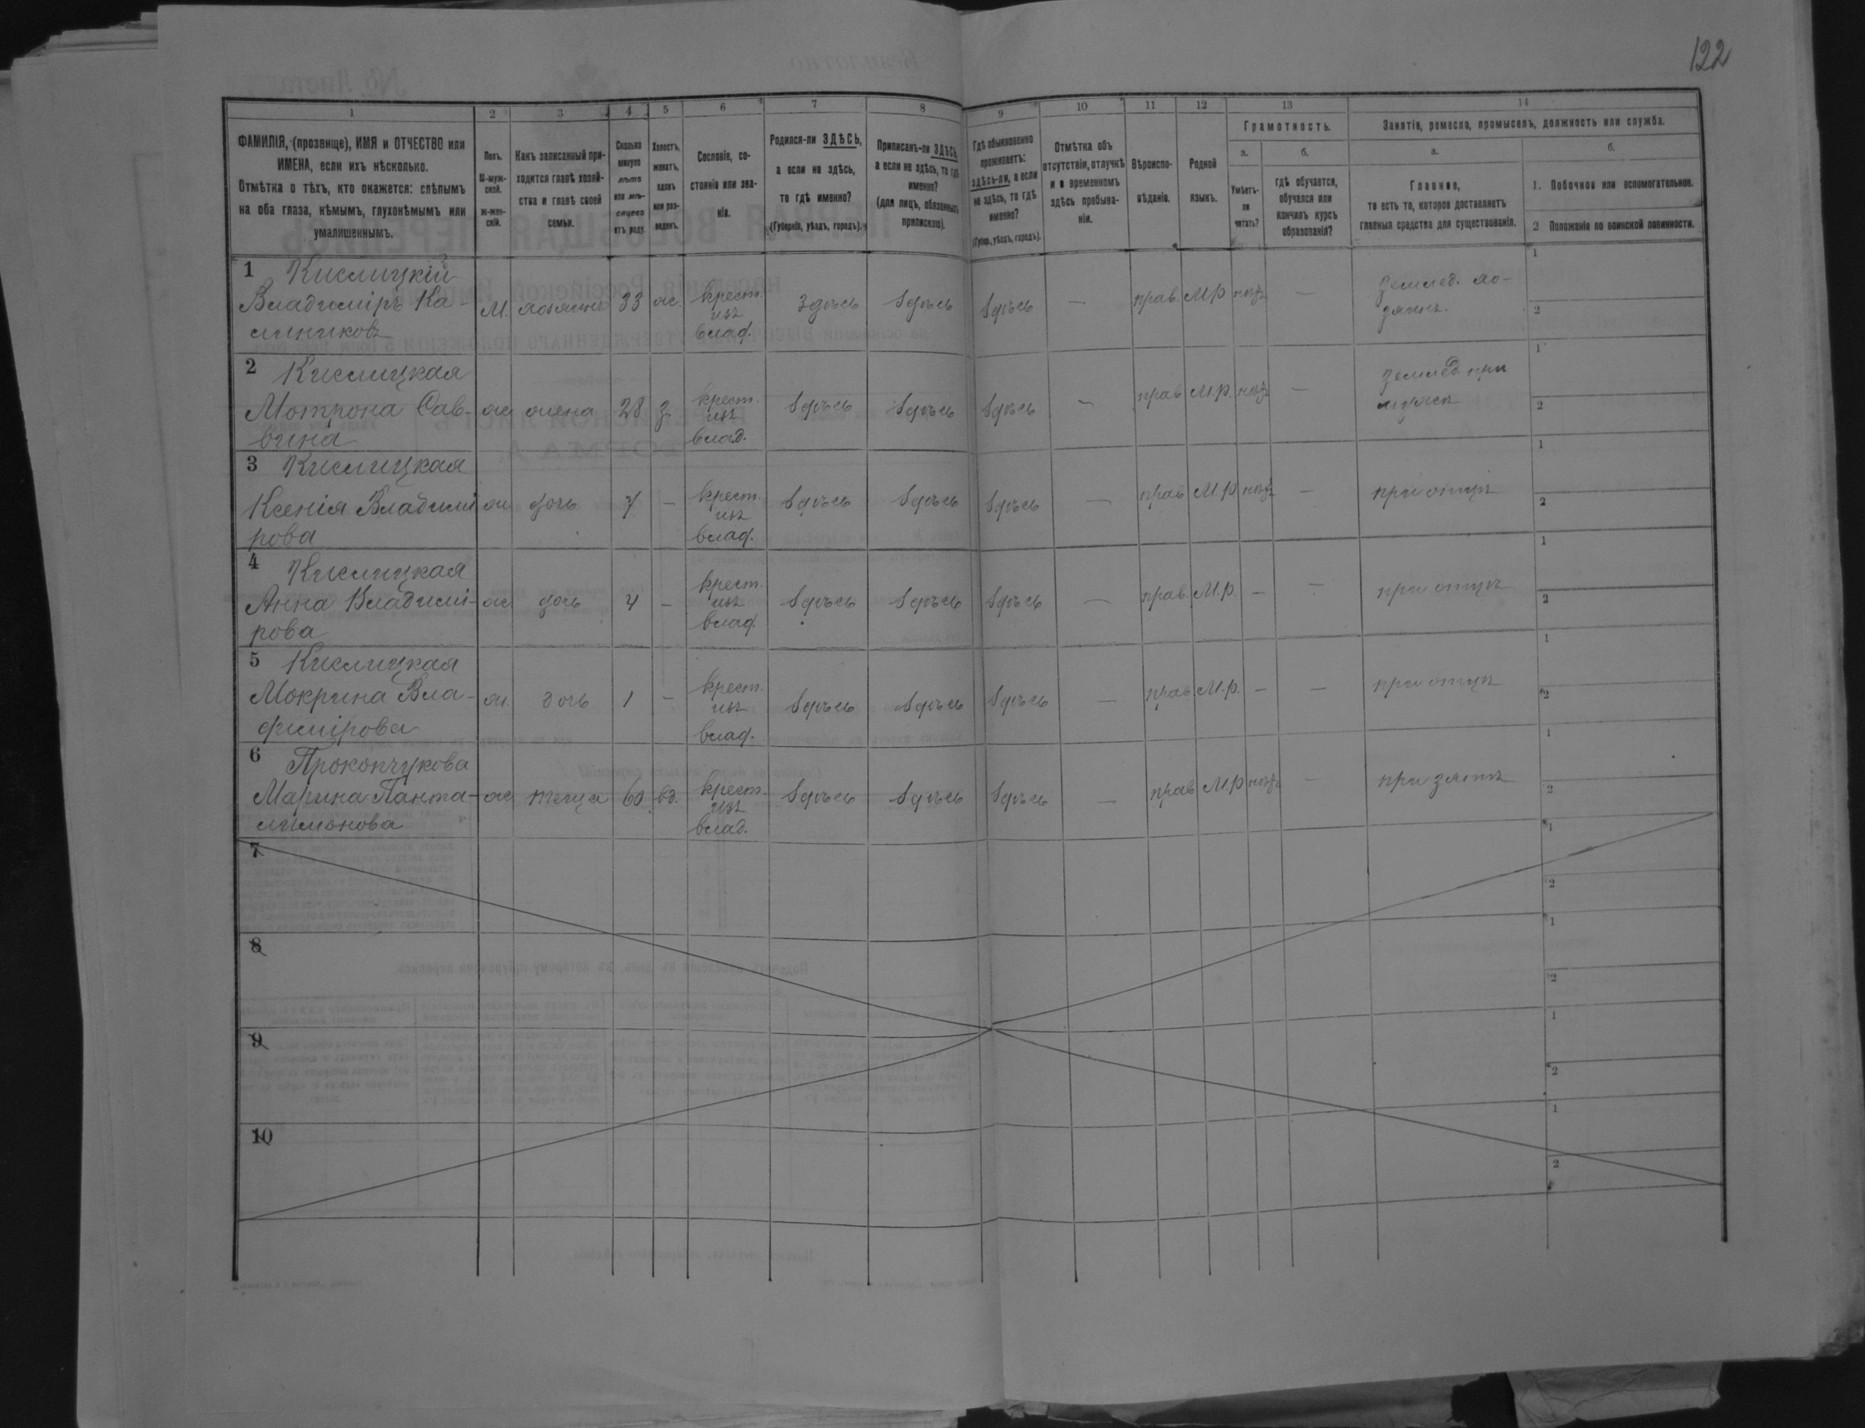 122
1 2 3 4 5 6 7 8 9 10 11 12 13 14
ФАМИЛІЯ, (прозвище), ИМЯ и ОТЧЕСТВО или
ИМЕНА, если ихъ нѣсколько.
Отмѣтка о тѣхъ, кто окажется: слѣпымъ
на оба глаза, нѣмымъ, глухонѣмымъ или
умалишеннымъ.
Полъ.
М-муж-
ской.
ж-жен-
скій.
Какъ записанный при-
ходится главѣ хозяй-
ства и главѣ своей
семьи.
Сколько
минуло
лѣтъ
или мѣ-
сяцевъ
отъ роду.
Холостъ,
женатъ,
вдовъ
или раз-
веденъ.
Сословіе, со-
стояніе или зва-
ніе.
Родился-ли ЗДѢСЬ,
а если не здѣсь,
то гдѣ именно?
(Губернія, уѣздъ, городъ).
Приписанъ-ли ЗДѢСЬ,
а если не здѣсь, то гдѣ
именно?
(для лицъ, обязанныхъ
припискою).
Гдѣ обыкновенно
проживаетъ:
здѣсь-ли, а если
не здѣсь, то гдѣ
именно?
(Губер., уѣздъ, городъ).
Отмѣтка объ
отсутствіи, отлучкѣ
и о временномъ
здѣсь пребыва-
ніи.
Вѣроиспо-
вѣданіе.
Родной
языкъ.
Грамотность.
а.
Умѣетъ-
ли
читать?
б.
гдѣ обучается,
обучался или
кончилъ курсъ
образованія?
Занятіе, ремесло, промыселъ, должность или служба.
а.
Главное,
то есть то, которое доставляетъ
главныя средства для существованія.
б.
1. Побочное или вспомогательное.
2 Положеніе по воинской повинности.
1 Кислицкій
Владиміръ Ка-
линиковъ
М. хозяинъ 33 ж.
крест.
изъ
влад.
здѣсь здѣсь здѣсь — прав. М.р. нѣтъ —
землед. хо-
зяинъ.
1
2
2 Кислицкая
Мотрона Сав-
вина
ж жена 28 з.
крест.
изъ
влад.
здѣсь здѣсь здѣсь — прав. М.р. нѣтъ —
землед. при
мужѣ
1
2
3 Кислицкая
Ксенія Владимі
рова
ж дочь 7 —
крест.
изъ
влад.
здѣсь здѣсь здѣсь — прав. М.р. нѣтъ — при отцѣ
1
2
4 Кислицкая
Анна Владимі-
рова
ж дочь 4 —
крест.
изъ
влад.
здѣсь здѣсь здѣсь — прав. М.р. — — при отцѣ
1
2
5 Кислицкая
Мокрина Вла-
димірова
ж. дочь 1 —
крест.
изъ
влад.
здѣсь здѣсь здѣсь — прав. М.р. — — при отцѣ
1
2
6 Прокопчукова
Марина Панта-
лимонова
ж теща 60 вд.
крест.
изъ
влад.
здѣсь здѣсь здѣсь — прав. М.р. нѣтъ — при зятѣ
1
2
7
1
2
8
1
2
9
1
2
10
1
2